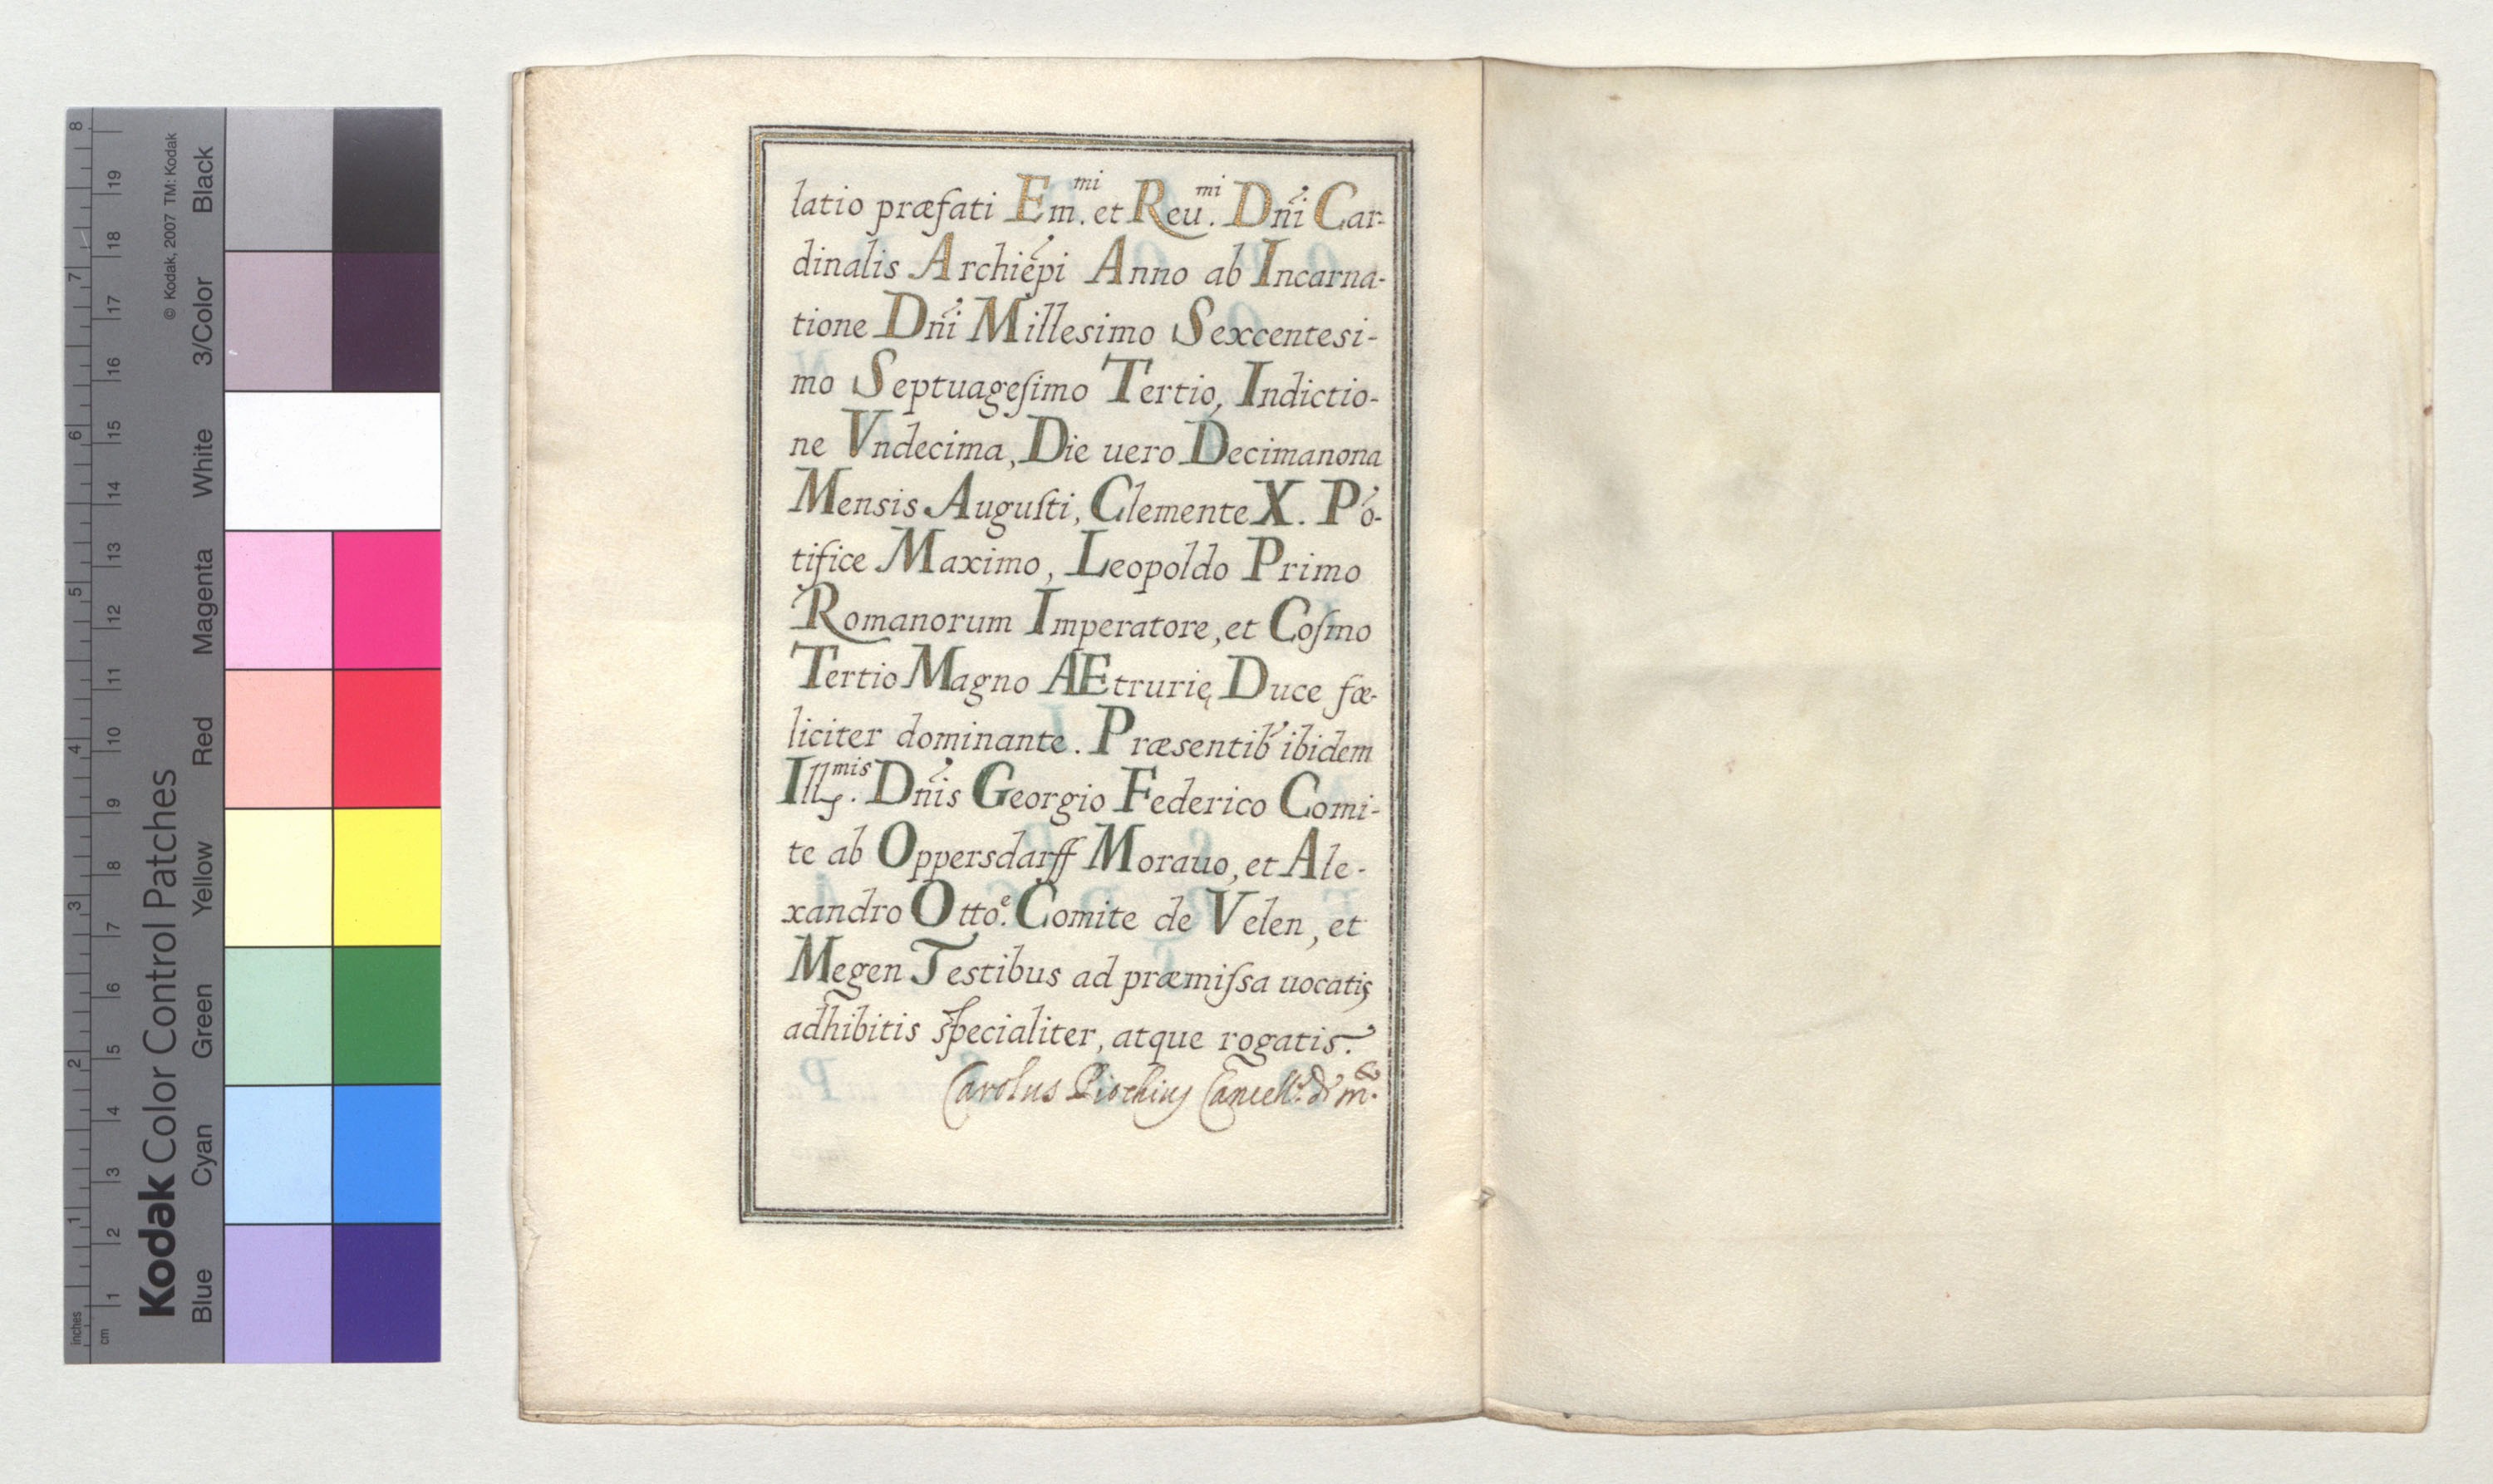 latio præfati Em.mi et Reu.mi Dñi Car-
dinalis Archiẽpi Anno ab Incarna-
tione Dñi Millesimo Sexcentesi-
mo Septuageſimo Tertio, Indictio-
ne Vndecima, Die uero Decimanona
Mensis Auguſti, Clemente X. Põ-
tifice Maximo, Leopoldo Primo
Romanorum Imperatore, et Coſmo
Tertio Magno AEtrurię Duce fœ-
liciter dominante. Præsentib' ibidem
Ill.mis Dñis Georgio Federico Comi-
te ab Oppersdarff Morauo, et Ale-
xandro Otto.e Comite de Velen, et
Megen Testibus ad præmiſsa uocatis,
adhibitis specialiter, atque rogatis.
Carolus
Kodak Color Control Patches
© Kodak, 2007 TM: Kodak
Blue Cyan Green Yellow Red Magenta White 3/Color Black
inches 1 2 3 4 5 6 7 8
cm 1 2 3 4 5 6 7 8 9 10 11 12 13 14 15 16 17 18 19